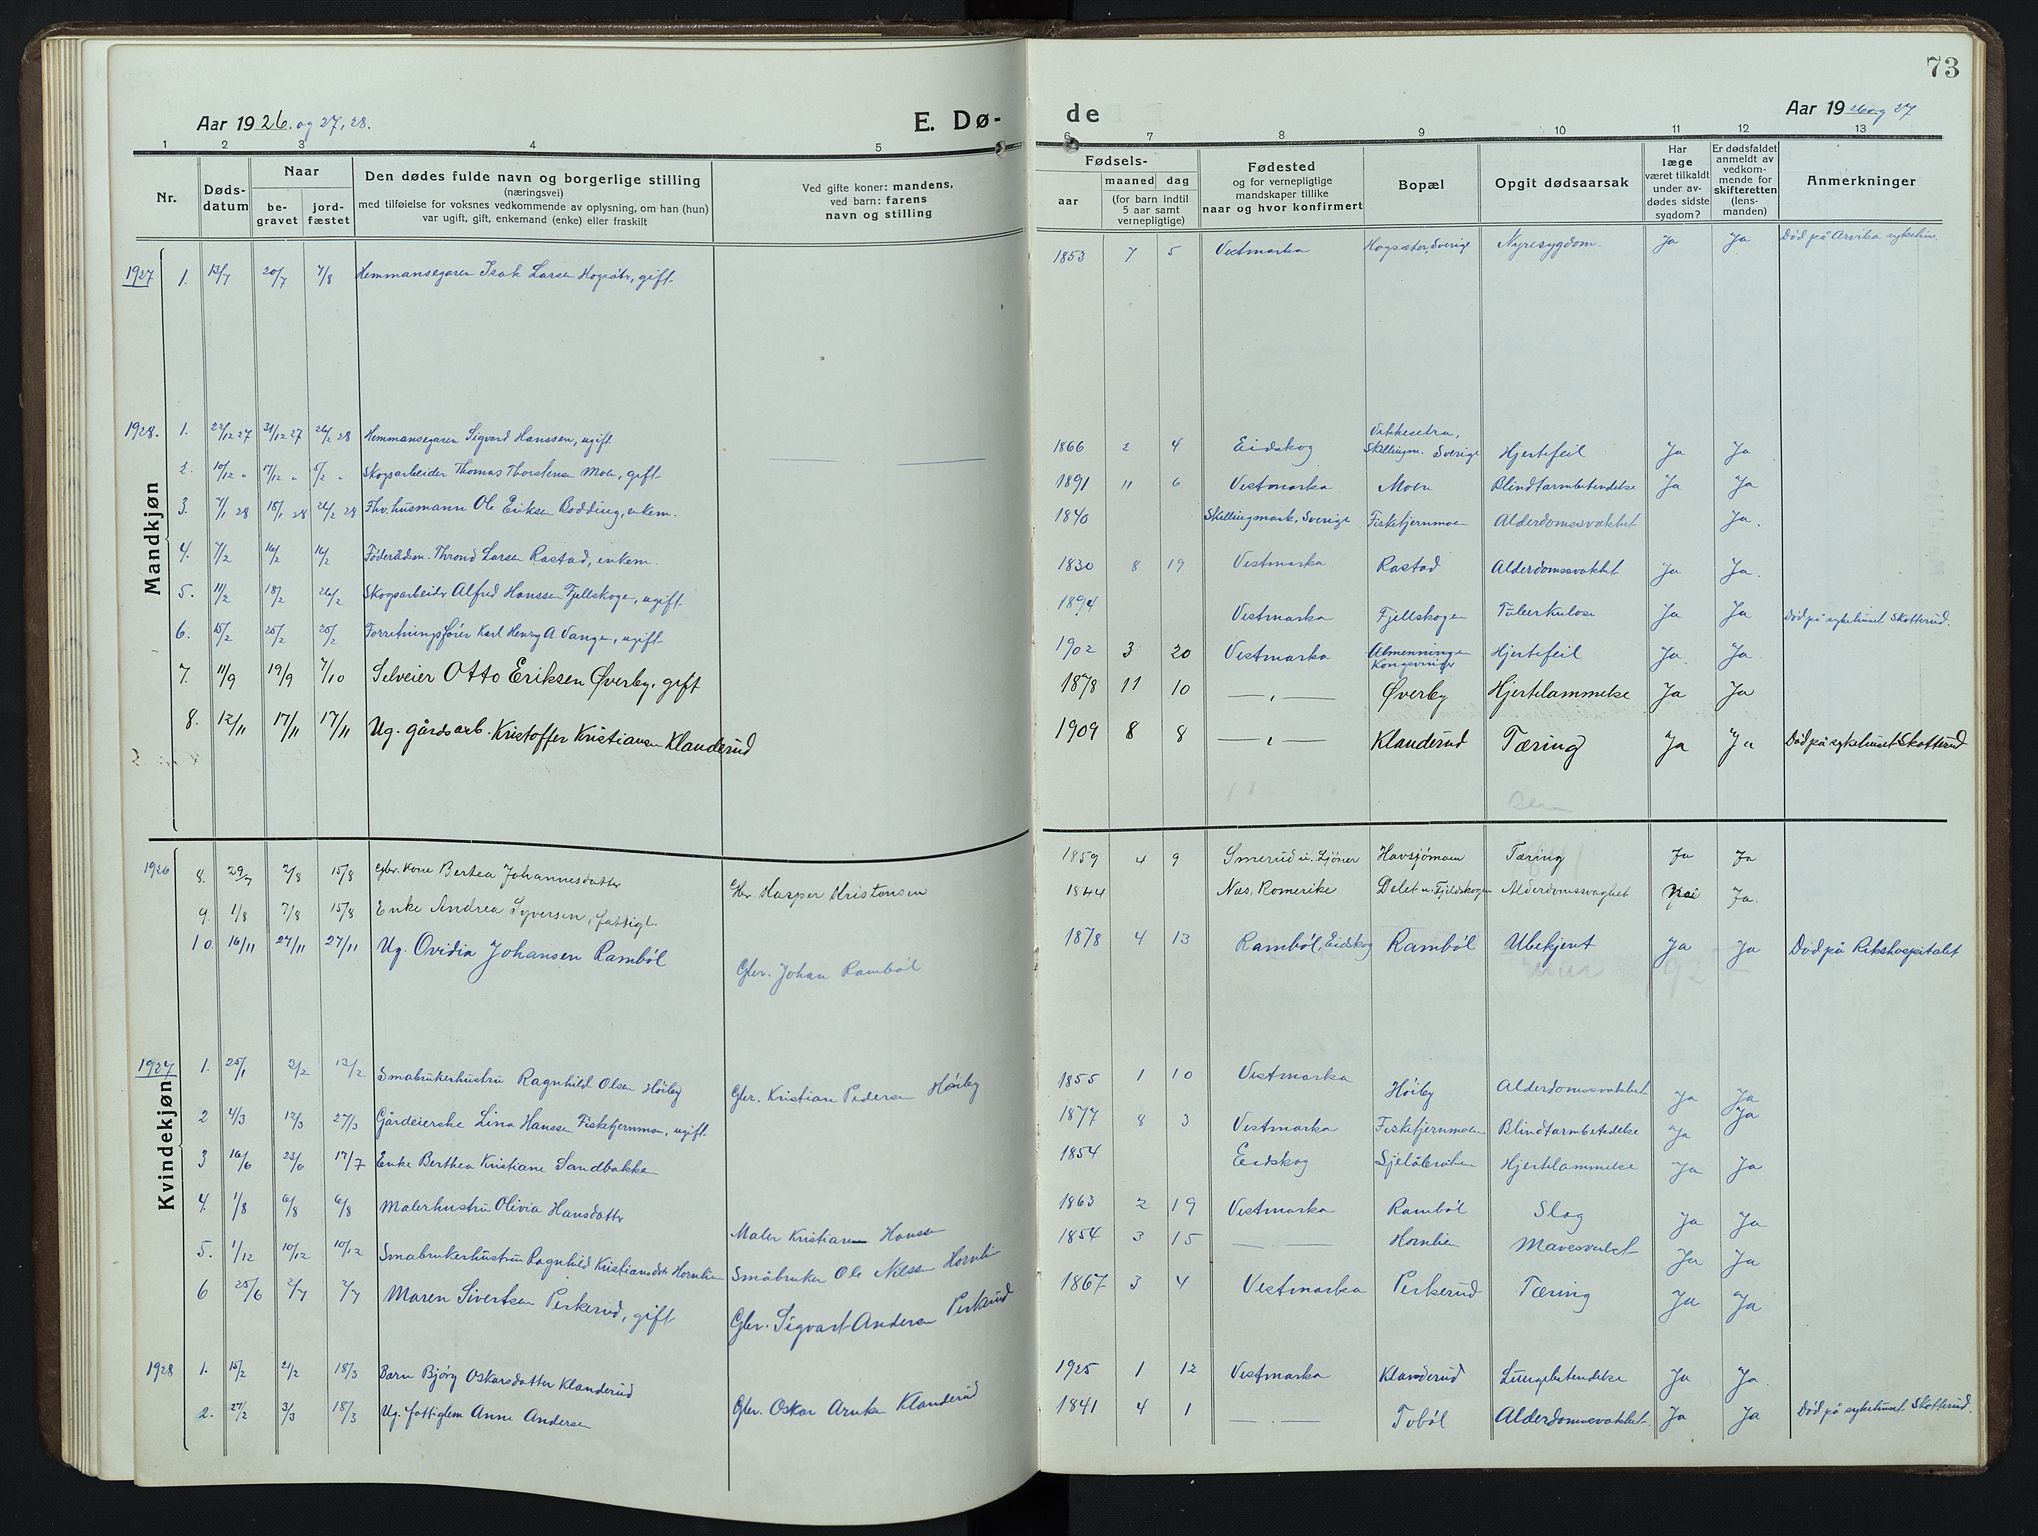 73
Aar 1926. og 27, 28.
E. Dø-
de
Aar 1926 og 27
1 2 3 4 5 6 7 8 9 10 11 12 13
Nr.
Døds-
datum
Naar
be-
gravet
jord-
fæstet
Den dødes fulde navn og borgerlige stilling
(næringsvei)
med tilføielse for voksnes vedkommende av oplysning, om han (hun)
var ugift, gift, enkemand (enke) eller fraskilt
Ved gifte koner: mandens,
ved barn: farens
navn og stilling
Fødsels-
aar
maaned dag
(for barn indtil
5 aar samt
vernepligtige)
Fødested
og for vernepligtige
mandskaper tillike
naar og hvor konfirmert
Bopæl
Opgit dødsaarsak
Har
læge
været tilkaldt
under av-
dødes sidste
sygdom?
Er dødsfaldet
anmeldt av
vedkom-
mende for
skifteretten
(lens-
manden)
Anmerkninger
Mandkjøn
1927 1. 13/7 20/7 7/8 Hemmansegaren Isak Larsen Hogsötr, gift 1853 7 5 Vestmarka Hogsæter, Sverige Nyresygdom. Ja Ja Död på Arvika sykehus.
1928. 1. 22/12 27 31/12 27 26/2 28 Hemmansegaren Sigvard Hanssen, ugift 1866 2 4 Eidskog Vikkesetra, Skillingm. Sverige Hjertefeil Ja Ja
2. 10/12 " 17/12 " 5/2 " Skogsarbeider Thomas Thorstensen Moen, gift 1891 11 6 Vestmarka Moen Blindtarmbetendelse Ja Ja
3. 7/1 28 18/1 28 26/2 28 Fhv. husmann Ole Eriksen Bodding, enkem. 1840 Skillingmark, Sverige Fisketjernmoen Alderdomssvakhet Ja.
4. 7/2 16/2 16/2 Föderådsm. Thrond Larsen Rastad, enkem. 1830 8 19 Vestmarka Rastad Alderdomssvakhet Ja Ja.
5. 11/2 18/2 26/2 Skogsarbeider Alfred Hanssen Fjellskogen, ugift 1894 Vestmarka Fjellskogen Tuberkulose Ja Ja Död på sykehuset Skotterud.
6. 15/2 25/2 25/2 Forretningsfører Karl Henry A. Vangen, ugift 1902 3 20 Vestmarka Almenningen Kongsvinger Hjertefeil Ja. Ja.
7. 11/9 19/9 7/10 Selveier Otto Eriksen Øverby, gift 1878 11 10 —„— Øverby Hjertelammelse Ja Ja
8. 12/11 17/11 17/11 Ug. gårdsarb. Kristoffer Kristiansen Klanderud 1909 8 8 —„— Klanderud Tæring Ja Ja Död på sykehuset Skotterud
Kvindekjøn
1926 8. 29/7 2/8 15/8 Gbr. kone Bertea Johannesdatter Gbr. Kasper Kristensen 1859 4 9 Smerud u. Sjöner Havsjömoen Tæring Ja Ja
9. 1/8 7/8 15/8 Enke Andrea Syversen, fattigl. 1844 Nes, Romerike Delet u. Fjeldskogen Alderdomssvaghet Nei Ja.
10. 16/11 27/11 27/11 Ug. Ovidia Johansen Ramböl Gbr. Johan Ramböl 1878 4 13 Ramböl, Eidskog Ramböl Ubekjent Ja Ja Död på Rikshospitalet
1927 1. 25/1 3/2 13/2 Småbrukerhustru Ragnhild Olsen Höiby Gbr. Kristian Pedersen Höiby 1855 1 10 Vestmarka Höiby Alderdomssvakhet Ja Ja
2 4/3 12/3 27/3 Gårdeierske Lina Hanssen Fisketjernmoen, ugift 1877 8 3 Vestmarka Fisketjernmoen Blindtarmbetedelse Ja Ja
3 16/6 23/6 17/7 Enke Berthea Kristiane Sandbakken 1854 Eidskog Hjertelammelse Ja Ja
4. 1/8 6/8 6/8 Malerhustru Olivia Hansdatter Maler Kristian Hansen 1863 2 19 Vestmarka Ramböl Slag Ja Ja
5. 1/12 10/12 10/12 Småbrukerhustru Ragnhild Kristiansdtr Hornlien Småbruker Ole Nilssen Hornli 1854 3 15 —„— Hornlien Mavesvulst Ja Ja
6 25/6 2/7 2/7 Maren Sivertsen Perkerud, gift Gbr. Sigvart Andersen Perkerud 1867 3 4 Vestmarka Perkerud Tæring Ja Ja
1928 1. 15/2 21/2 18/3 Barn Bjørg Oskarsdatter Klanderud Gbr. Oskar Arnesen Klanderud 1925 1 12 Vestmarka Klanderud Lungebetendelse Ja Ja.
2. 27/2 3/3 18/3 Ug. fattiglem Anne Andersen 1841 4 1 —„— Toböl Alderdomssvakhet Ja Ja Död på sykehuset Skotterud.